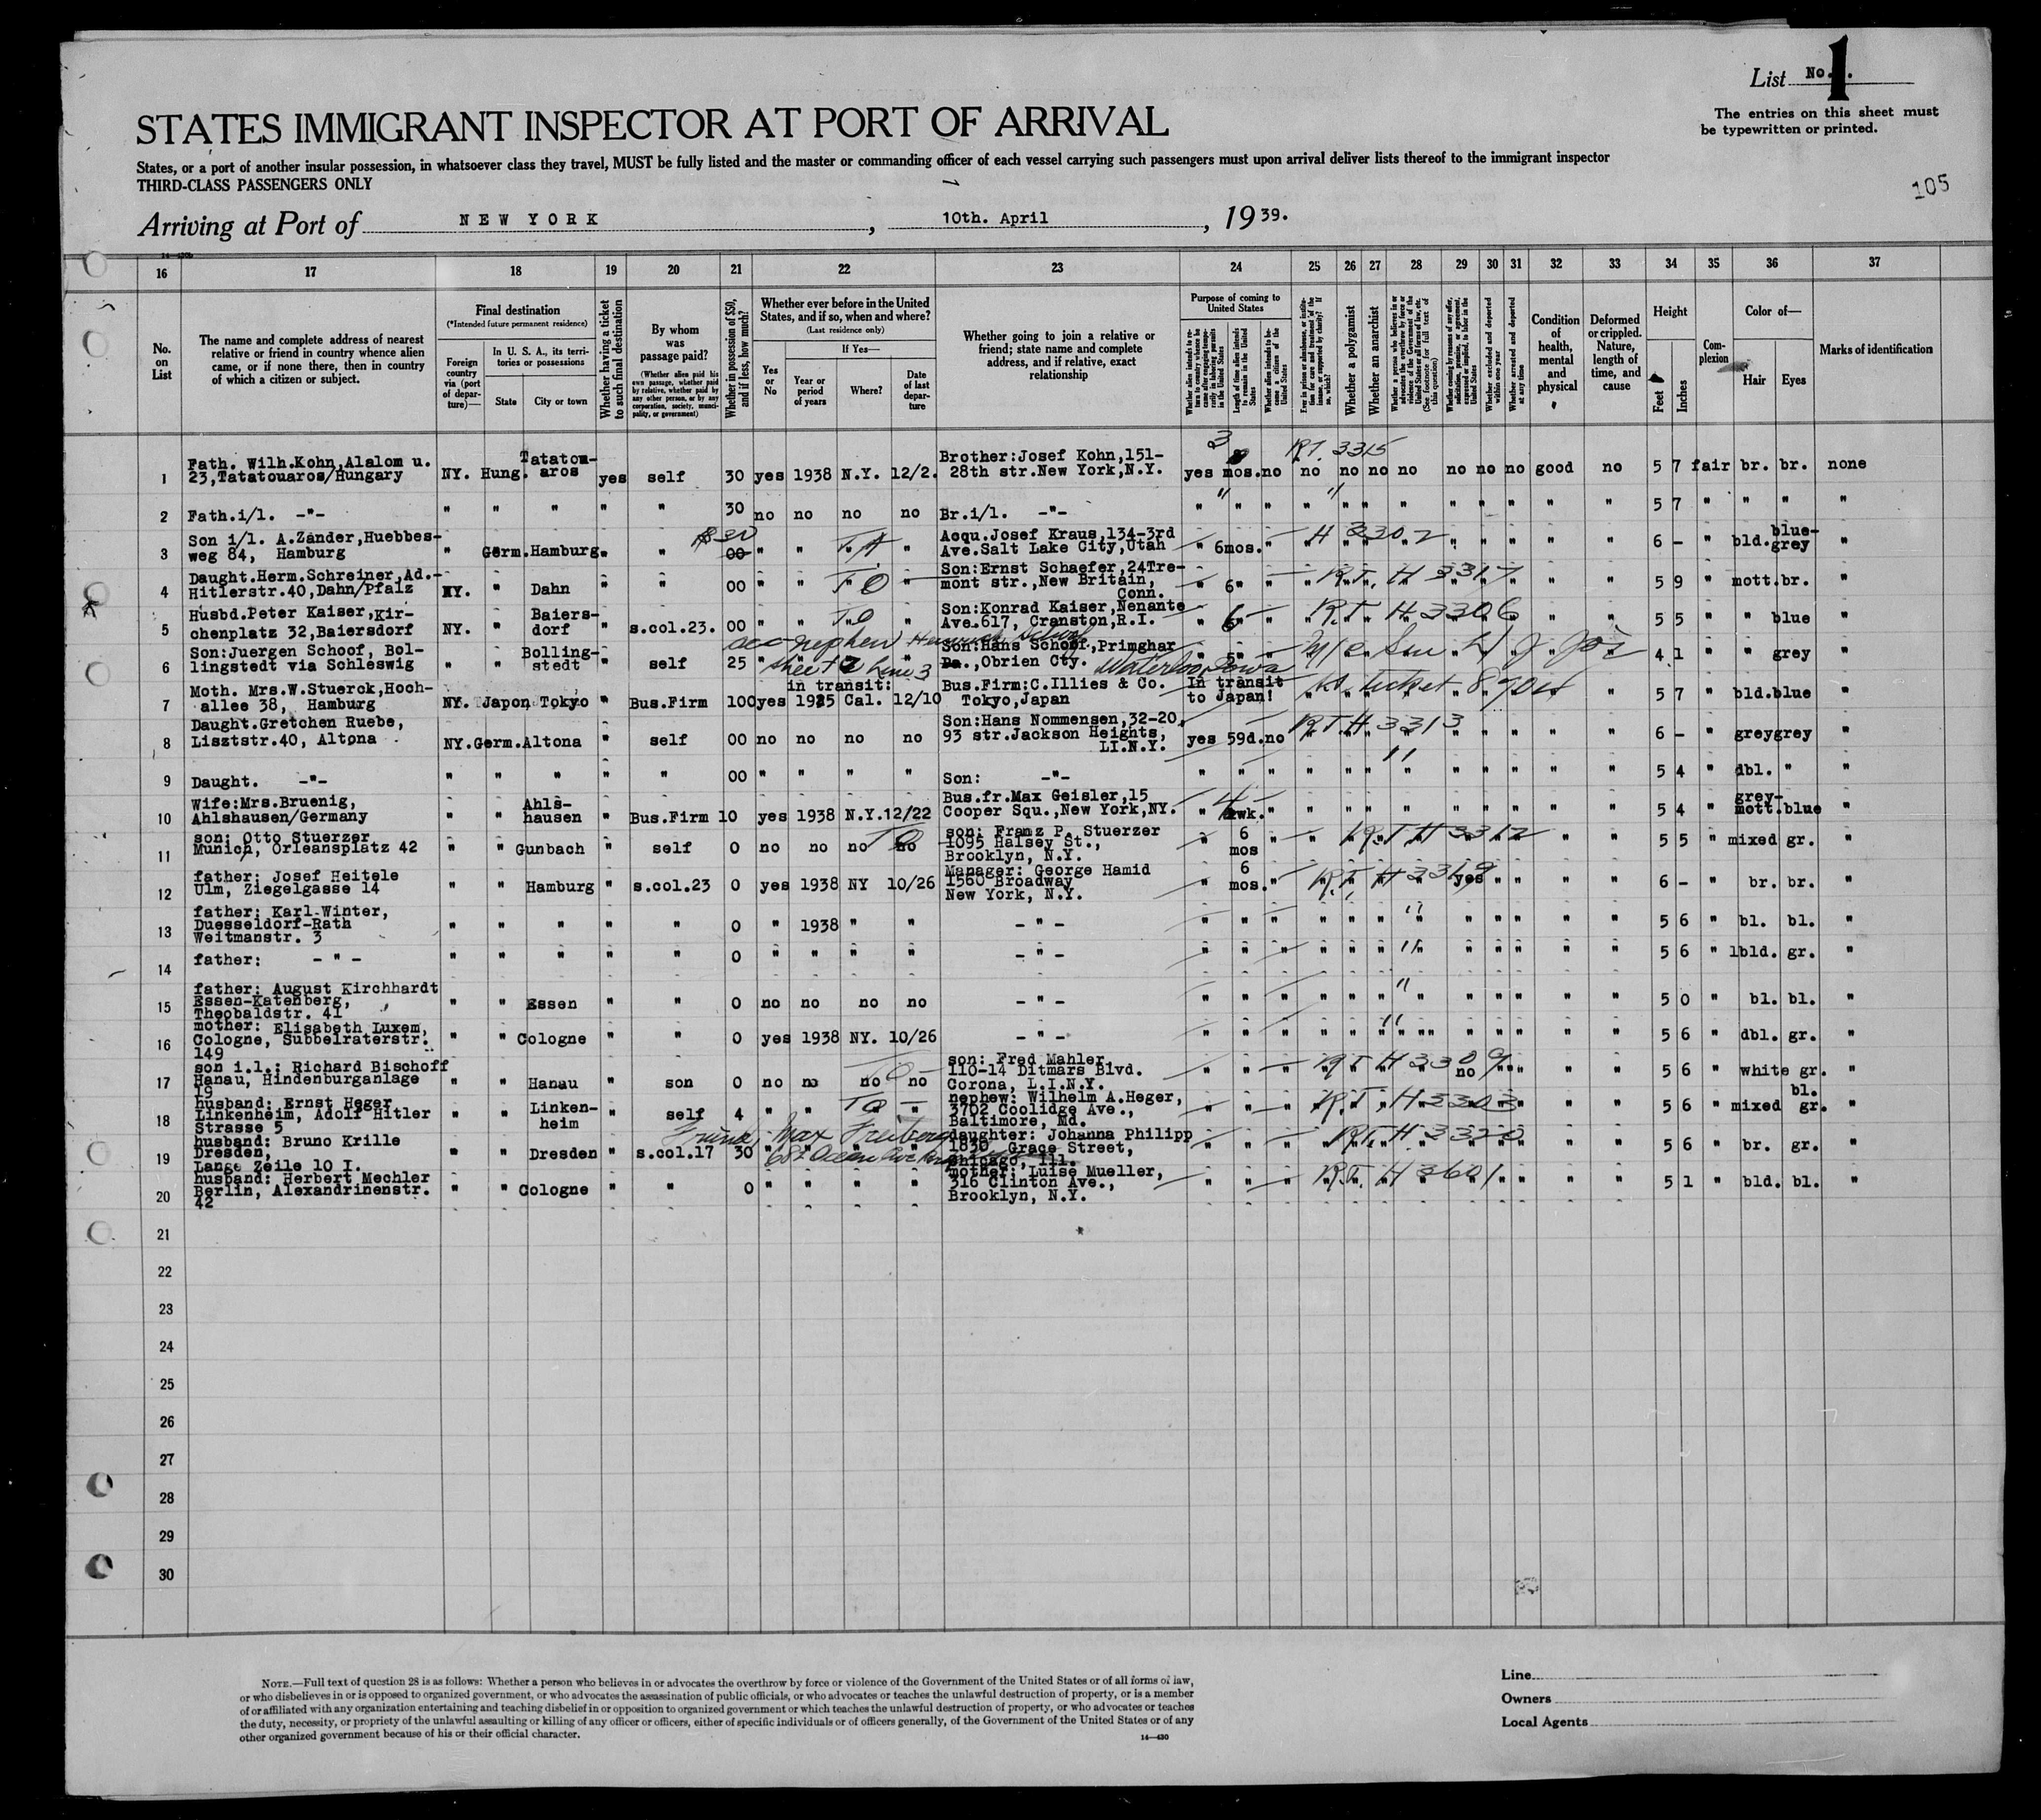 List No. 1.
The entries on this sheet must
be typewritten or printed.
STATES IMMIGRANT INSPECTOR AT PORT OF ARRIVAL
States, or a port of another insular possession, in whatsoever class they travel, MUST be fully listed and the master or commanding officer of each vessel carrying such passengers must upon arrival deliver lists thereof to the immigrant inspector
THIRD-CLASS PASSENGERS ONLY
105
Arriving at Port of NEW YORK, 10th. April, 1939.
16 17 18 19 20 21 22 23 24 25 26 27 28 29 30 31 32 33 34 35 36 37
No. on List
The name and complete address of nearest
relative or friend in country whence alien
came, or if none there, then in country
of which a citizen or subject.
Final destination
(*Intended future permanent residence)
Foreign country via (port of departure)—
In U. S. A., its territories or possessions
State
City or town
Whether having a ticket to such final destination
By whom was passage paid?
(Whether alien paid his own passage, whether paid by relative, whether paid by any other person, or by any corporation, society, municipality, or government)
Whether in possession of $50, and if less, how much?
Whether ever before in the United States, and if so, when and where?
(Last residence only)
Yes or No
If Yes—
Year or period of years
Where?
Date of last departure
Whether going to join a relative or
friend; state name and complete
address, and if relative, exact
relationship
Purpose of coming to United States
Whether a polygamist
Whether an anarchist
Whether excluded and deported within one year
Whether arrested and deported at any time
Condition of health, mental and physical
Deformed or crippled. Nature, length of time, and cause
Height
Feet
Inches
Complexion
Color of—
Hair
Eyes
Marks of identification
3 R.T. 3315
1 Fath. Wilh.Kohn,Alalom u. 23,Tatatouaros/Hungary NY. Hung. Tatatouaros yes self 30 yes 1938 N.Y. 12/2. Brother:Josef Kohn,151-28th str.New York,N.Y. yes mos. no no no no no no no no good no 5 7 fair br. br. none
2 Fath.i/l. -"- " " " " " 30 no no no no Br.i/l. -"- " " " " " " " " " " " " " 5 7 " " " "
3 Son i/l. A.Zander,Huebbesweg 84, Hamburg " Germ. Hamburg " " $30 00 " " " " Acqu.Josef Kraus,134-3rd Ave.Salt Lake City,Utah " 6mos. " H 3302 " " 6 - " bld. blue-grey "
4 Daught.Herm.Schreiner,Ad.-Hitlerstr.40,Dahn/Pfalz NY. " Dahn " " 00 " " T O " Son:Ernst Schaefer,24Tremont str.,New Britain, Conn. " 6" " R.T. H 3317 " " 5 9 " mott. br. "
5 Husbd.Peter Kaiser,Kirchenplatz 32,Baiersdorf NY. " Baiersdorf " s.col.23. 00 " " T O " Son:Konrad Kaiser,Nenante Ave.617, Cranston,R.I. " 6 " R.T. H 3306 " " 5 5 " " blue "
acc nephew
sheet 2 line 3
Waterloo, Iowa
6 Son:Juergen Schoof, Bollingstedt via Schleswig " " Bollingstedt " self 25 " Son:Hans Schoof,Primghar Da.,Obrien Cty. " 5" " " " 4 1 " " grey "
7 Moth. Mrs.W.Stuerck,Hochallee 38, Hamburg NY. Japon Tokyo " Bus.Firm 100 yes in transit: 1925 Cal. 12/10 Bus.Firm:C.Illies & Co. Tokyo,Japan In transit to Japan! ticket " " 5 7 " bld. blue "
8 Daught.Gretchen Ruebe, Lisztstr.40, Altona NY. Germ. Altona " self 00 no no no no Son:Hans Nommensen,32-20, 93 str.Jackson Heights, LI.N.Y. yes 59d. no R T H 3313 " " 6 - " grey grey "
9 Daught. -"- " " " " " 00 " " " " Son: -"- " " " " " " " " " " " " 5 4 " dbl. " "
10 Wife:Mrs.Bruenig, Ahlshausen/Germany " " Ahlshausen " Bus.Firm 10 yes 1938 N.Y. 12/22 Bus.fr.Max Geisler,15 Cooper Squ.,New York,NY. " 4 wk. " " " " " " " " " " " 5 4 " grey-mott. blue "
11 son: Otto Stuerzer Munich, Orleansplatz 42 " " Gunbach " self 0 no no no no T O son: Franz P. Stuerzer 1095 Halsey St., Brooklyn, N.Y. " 6 mos " R.T. H 3312 " " 5 5 " mixed gr. "
12 father: Josef Heitele Ulm, Ziegelgasse 14 " " Hamburg " s.col.23 0 yes 1938 NY 10/26 Manager: George Hamid 1560 Broadway New York, N.Y. " 6 mos. " R.T. H 3319 yes " " " " 6 - " br. br. "
13 father: Karl Winter, Duesseldorf-Rath Weitmanstr. 3 " " " " " 0 " 1938 " " - " - " " " " " " " " " " " " 5 6 " bl. bl. "
14 father: - " - " " " " " 0 " " " " - " - " " " " " " " " " " " " 5 6 " lbld. gr. "
15 father: August Kirchhardt Essen-Katenberg, Theobaldstr. 41 " " Essen " " 0 no no no no - " - " " " " " " " " " " " " 5 0 " bl. bl. "
16 mother: Elisabeth Luxem, Cologne, Subbelraterstr. 149 " " Cologne " " 0 yes 1938 NY. 10/26 - " - " " " " " " " " " " " " 5 6 " dbl. gr. "
17 son i.l.: Richard Bischoff Hanau, Hindenburganlage 19 " " Hanau " son 0 no no no no son: Fred Mahler 110-14 Ditmars Blvd. Corona, L.I.N.Y. " " " R T H 3309 no " " " " 5 6 " white gr. "
18 husband: Ernst Heger Linkenheim, Adolf Hitler Strasse 5 " " Linkenheim " self 4 " " T O " nephew: Wilhelm A.Heger, 3702 Coolidge Ave., Baltimore, Md. " " " R.T. H 3303 " " 5 6 " mixed bl. gr. "
Friend, Max Freiberg
682 Ocean Ave
19 husband: Bruno Krille Dresden, Lange Zeile 10 I. " " Dresden " s.col.17 30 " " " " daughter: Johanna Philipp 1830 Grace Street, Chicago, Ill. " " " R.T. H 3320 " " 5 6 " br. gr. "
20 husband: Herbert Mechler Berlin, Alexandrinenstr. 42 " " Cologne " " 0 " " " " mother: Luise Mueller, 316 Clinton Ave., Brooklyn, N.Y. " " " R.T. H 3601 " " 5 1 " bld. bl. "
21
22
23
24
25
26
27
28
29
30
NOTE.—Full text of question 28 is as follows: Whether a person who believes in or advocates the overthrow by force or violence of the Government of the United States or of all forms of law,
or who disbelieves in or is opposed to organized government, or who advocates the assassination of public officials, or who advocates or teaches the unlawful destruction of property, or is a member
of or affiliated with any organization entertaining and teaching disbelief in or opposition to organized government or which teaches the unlawful destruction of property, or who advocates or teaches
the duty, necessity, or propriety of the unlawful assaulting or killing of any officer or officers, either of specific individuals or of officers generally, of the Government of the United States or of any
other organized government because of his or their official character.
14—430
Line
Owners
Local Agents